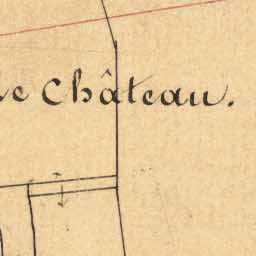 le Château.